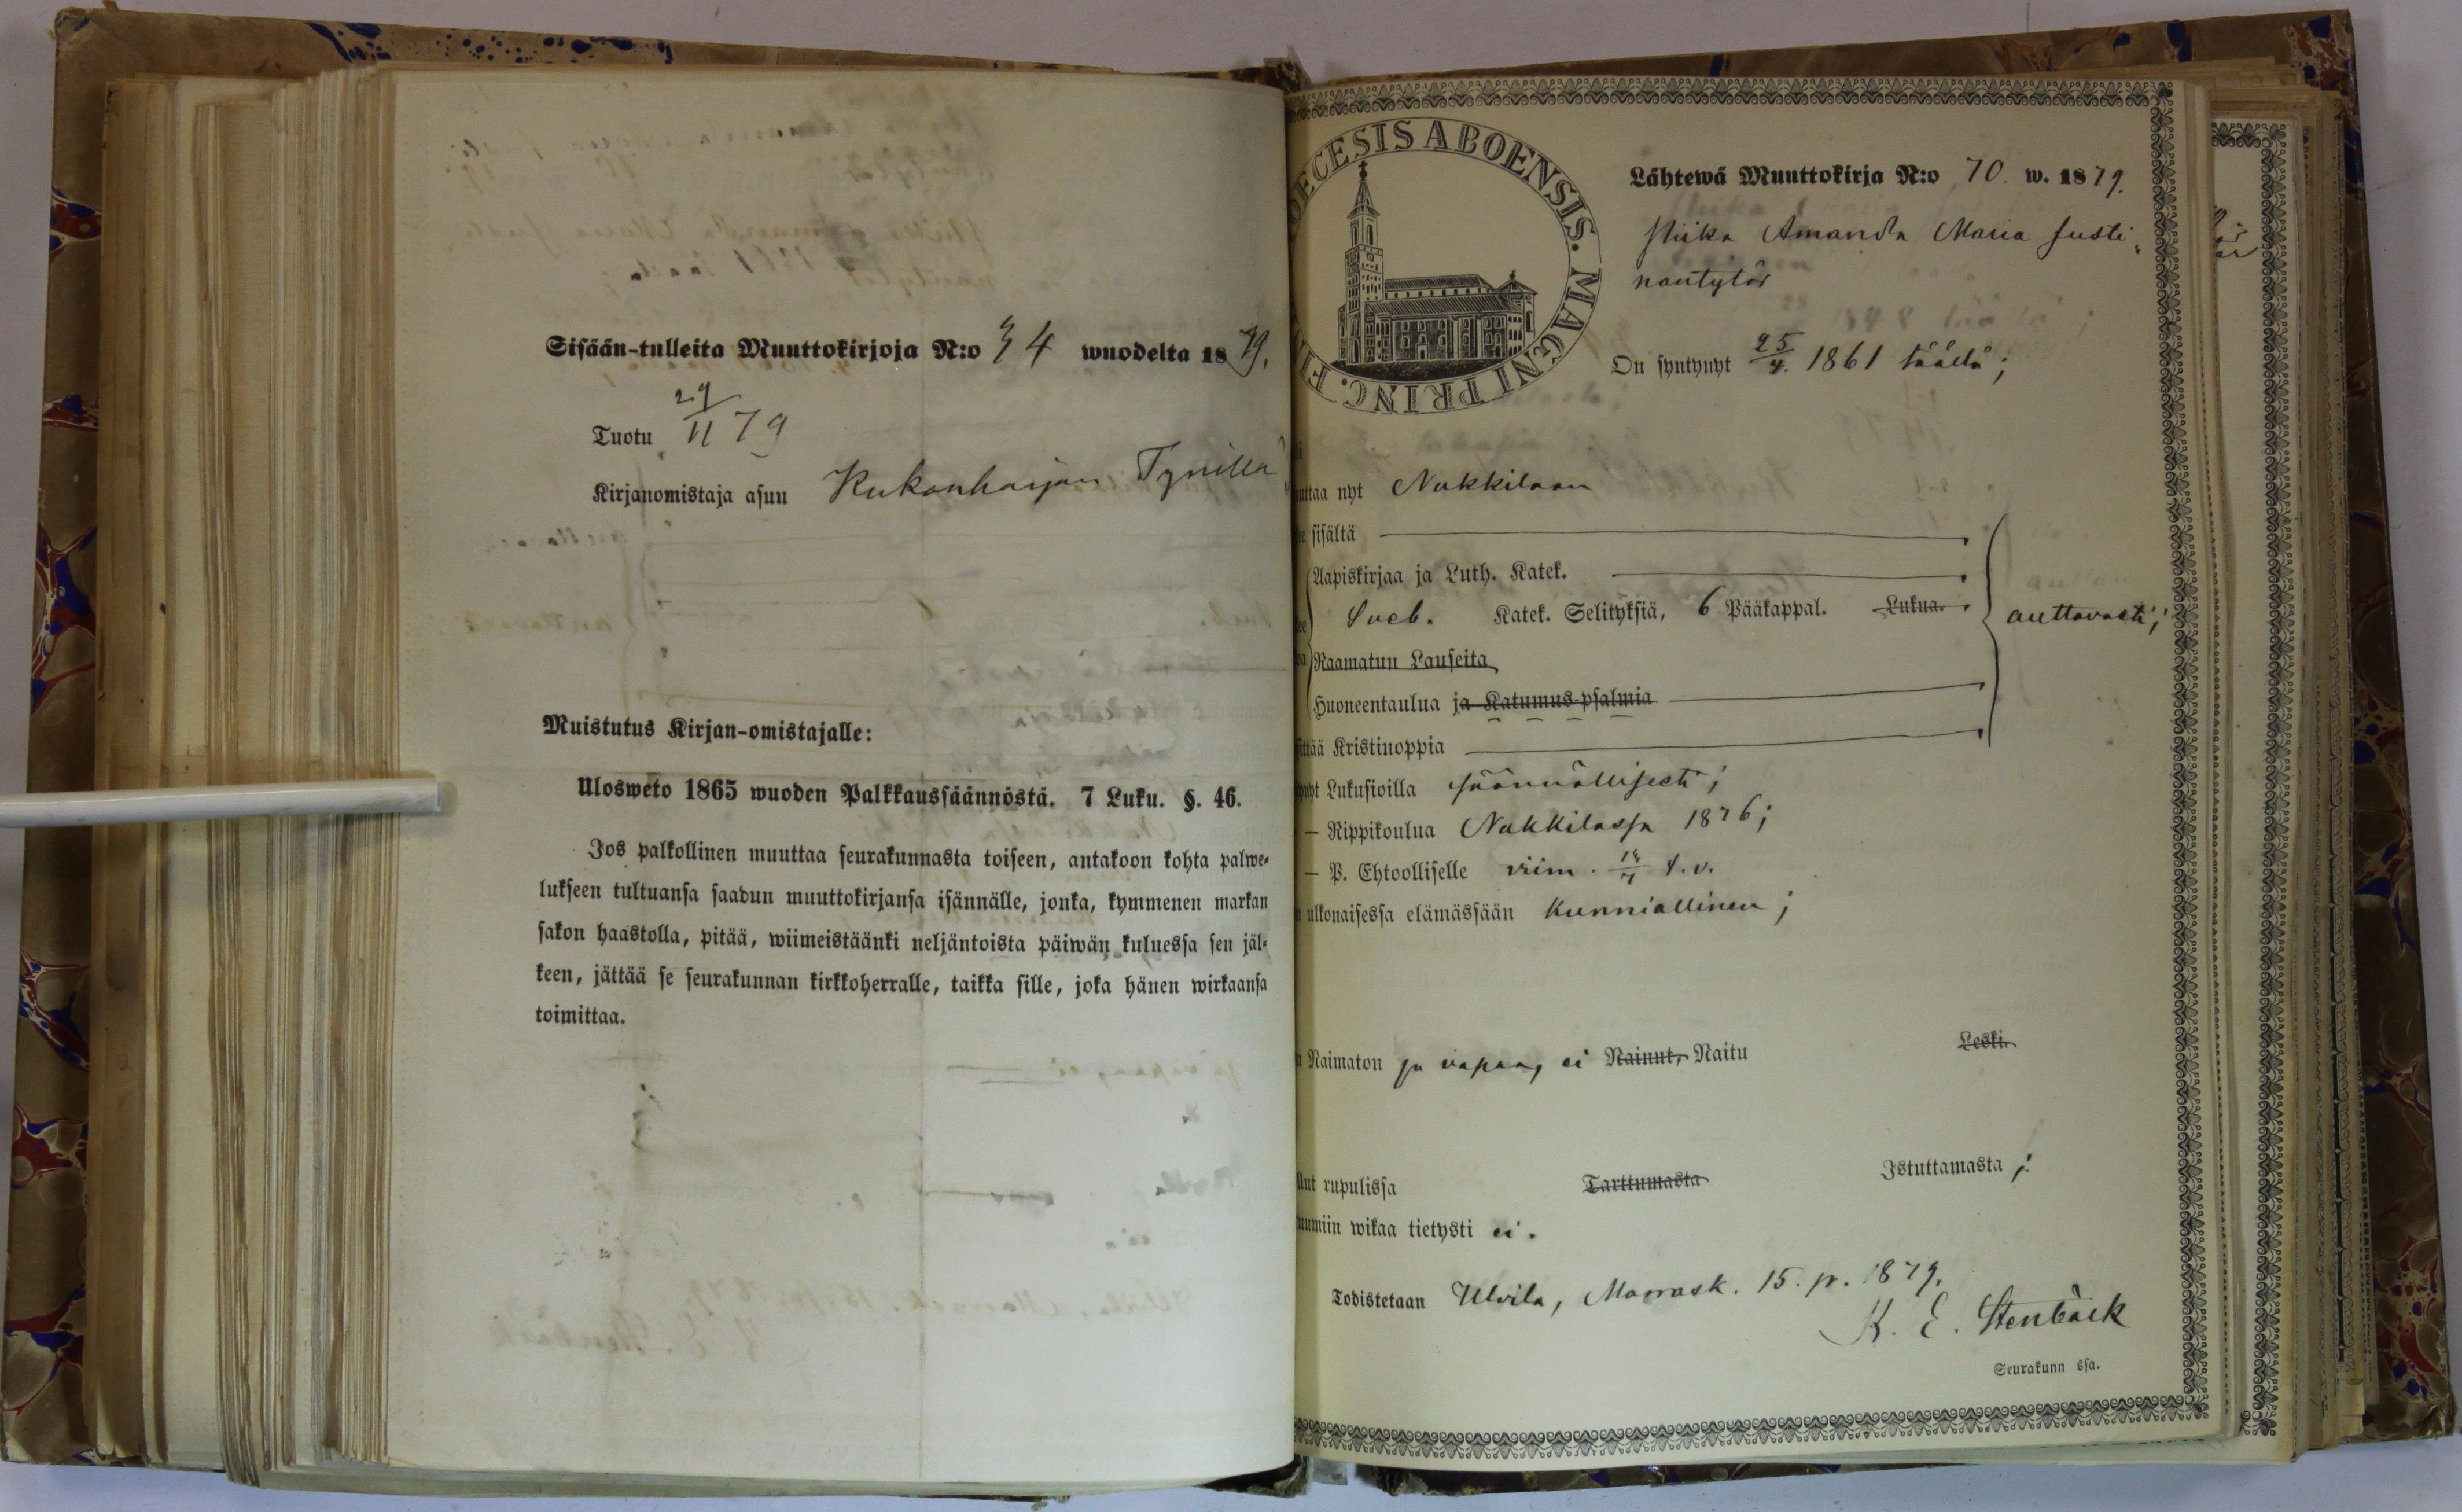 Sisään-tulleita Muuttokirjoja N:o 34 wuodelta 1879.
Tuotu 29/11 79
Kirjanomistaja asuu Kukonharjan Tynillä
Muistutus Kirjan-omistajalle:
Ulosweto 1865 wuoden Palkkaussäännöstä. 7 Luku. §. 46.
Jos palkollinen muuttaa seurakunnasta toiseen, antakoon kohta palwe-
lukseen tultuansa saadun muuttokirjansa isännälle, jonka, kymmenen markan
sakon haastolla, pitää, wiimeistäänki neljäntoista päiwän kuluessa sen jäl-
keen, jättää se seurakunnan kirkkoherralle, taikka sille, joka hänen wirkaansa
toimittaa.
DECESIS ABOENSIS. MAGNI PRINC. FI
Lähtewä Muuttokirja N:o 70. w. 1879.
Piika Amanda Maria Justi-
nantytär
On syntynyt 25/4. 1861 täällä;
uttaa nyt Nakkilaan
sisältä
Aapiskirjaa ja Luth. Katek.
Sveb. Katek. Selityksiä, 6 Pääkappal. Lukua. auttavasti;
Raamatun Lauseita
Huoneentaulua ja Katumus-psalmia
ittää Kristinoppia
ynyt Lukusioilla säännöllisesti;
— Rippikoulua Nakkilassa 1876;
— P. Ehtoolliselle viim. t. v.
ulkonaisessa elämässään Kunniallinen;
Naimaton ja vapaa, ei Nainut, Naitu Leski.
llut rupulissa Tarttumasta Istuttamasta;
uumiin wikaa tietysti ei.
Todistetaan Ulvila, Marrask. 15. p. 1879.
K. E. Stenbäck
Seurakunn ssa.